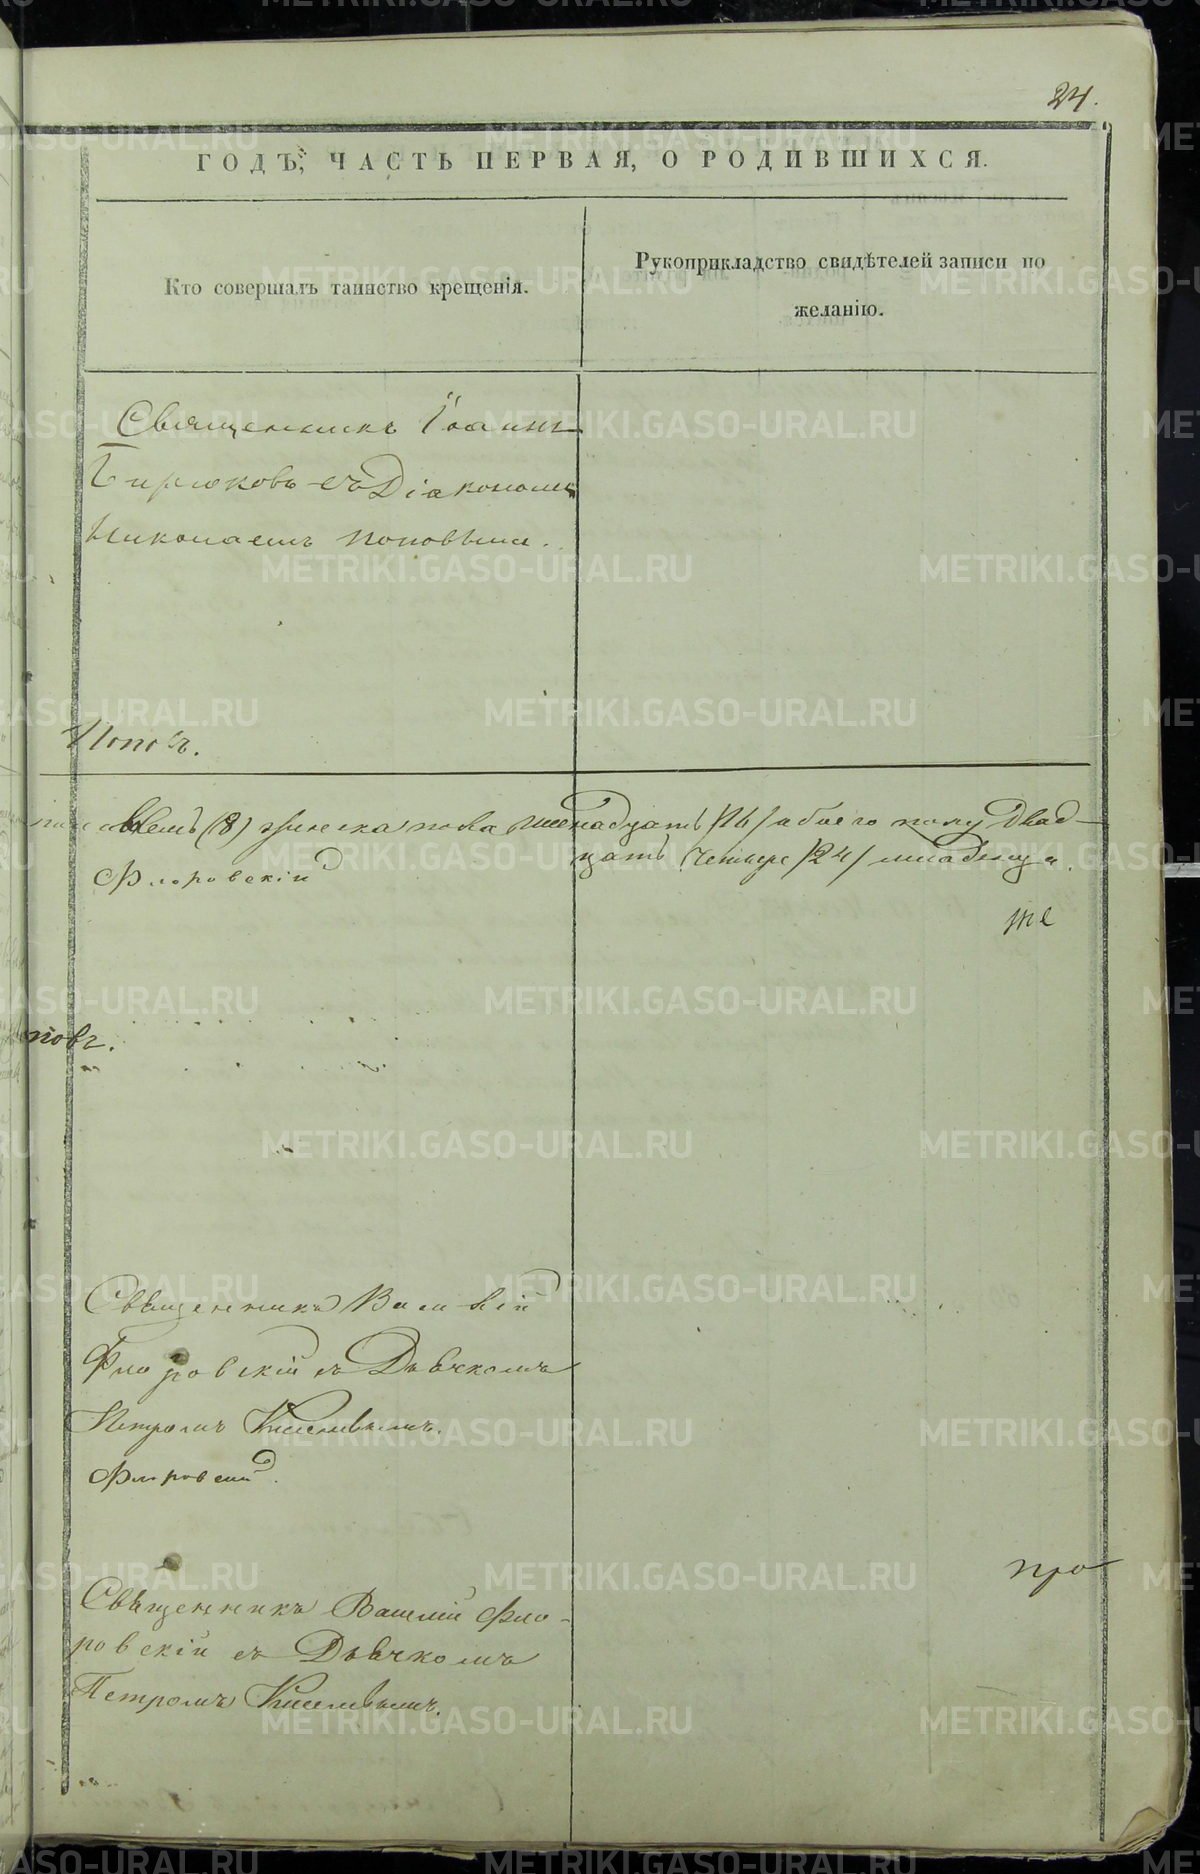 24.
ГОДЪ, ЧАСТЬ ПЕРВАЯ, О РОДИВШИХСЯ.
Кто совершалъ таинство крещенія.
Рукоприкладство свидѣтелей записи по
желанію.
Священникъ Іоаннъ
Бирюковъ съ Діакономъ
Николаемъ Поповымъ.
Поповъ.
(8) женска пола шестнадцать /16/ обоего полу Двад-
цать четыре /24/ младенца.
Флоровскій
же
повъ.
Священникъ Василій
Флоровскій съ Дьячкомъ
Петромъ Киселевымъ.
Флоровскій.
про
Священникъ Василій Фло-
ровскій съ Дьячкомъ
Петромъ Киселевымъ.
METRIKI.GASO-URAL.RU